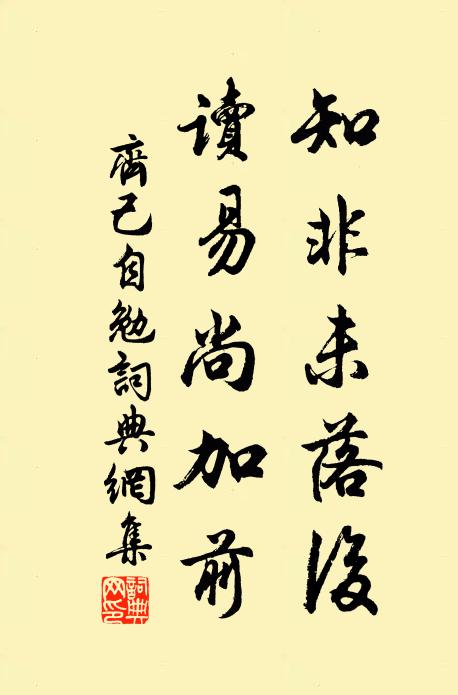 知非未落後
讀易尚加前
齊己自勉詞典網集
詞典
网印